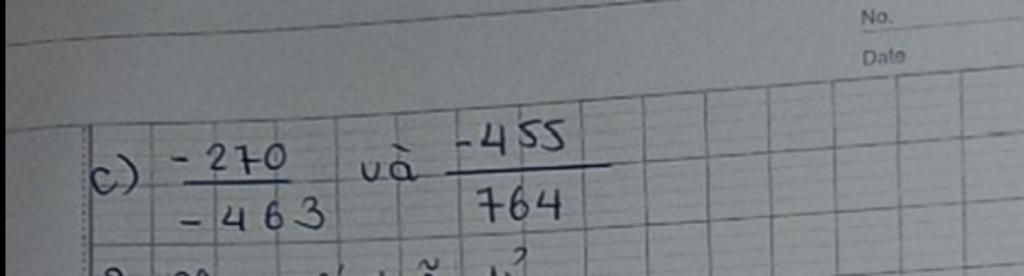 No.
Date
c) -270/-463 và -455/764